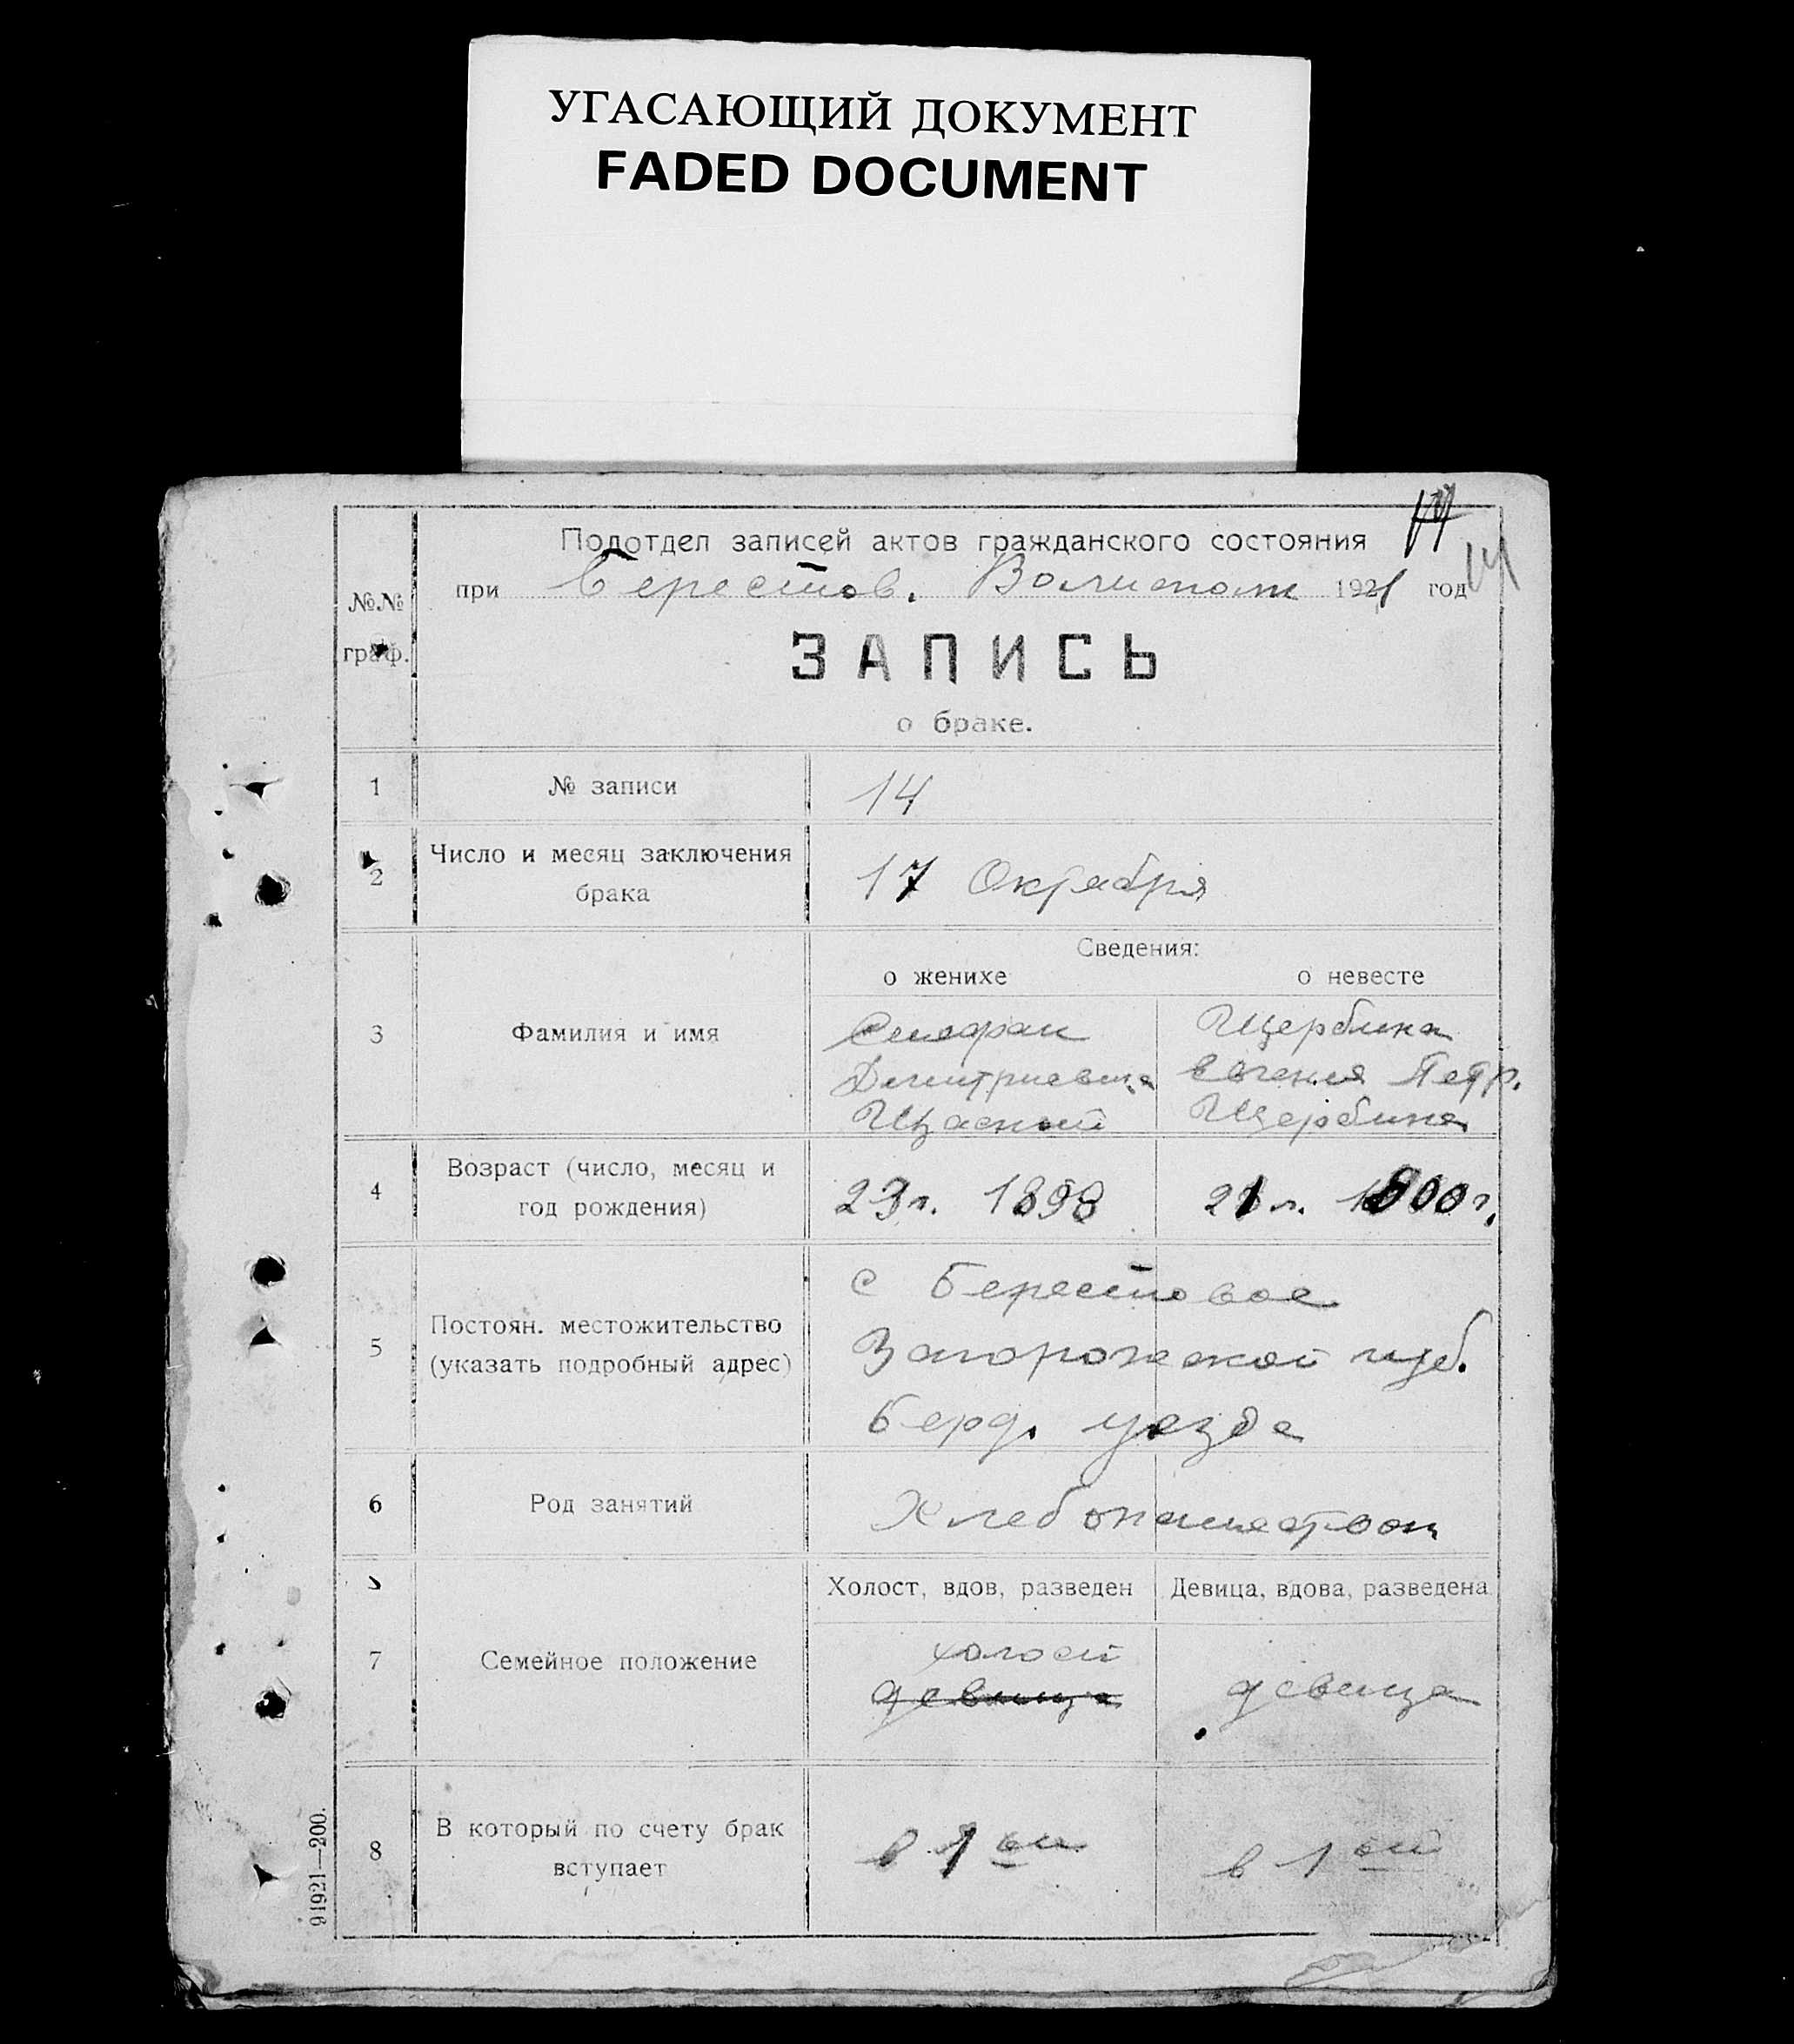 УГАСАЮЩИЙ ДОКУМЕНТ
FADED DOCUMENT
14
14
Подотдел записей актов гражданского состояния
№№ граф.
при Берестов. Волисполк 1921 год
ЗАПИСЬ
о браке.
1 № записи 14
2 Число и месяц заключения брака 17 Октября
Сведения:
о женихе о невесте
3 Фамилия и имя
Щербина
Димитриевич Евгения Петр.
Щасный Щербина
4 Возраст (число, месяц и год рождения) 23 г. 1898 21 л. 1900 г.
5 Постоян. местожительство (указать подробный адрес)
с Берестовое
Запорожской губ.
Берд. уезда
6 Род занятий Хлебопашеством
Холост, вдов, разведен Девица, вдова, разведена
7 Семейное положение
холост
девица девица
8 В который по счету брак вступает в 1 ой в 1 ой
91921—200.